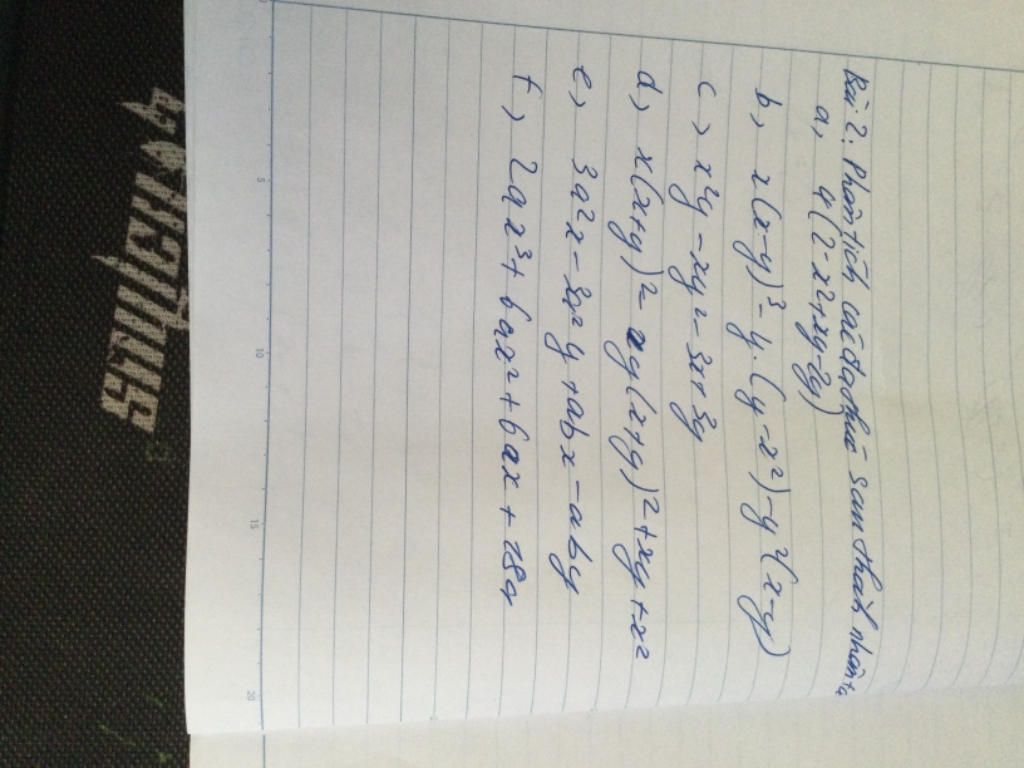 Bài 2: Phân tích các đa thức sau thành nhân tử
a, y(2-x²+xy-2y)
b, x(x-y)³-y.(y-x²)-y²(x-y)
c, x²y-xy²-3x+3y
d, x(x+y)²-xy(x+y)²+xy+x²
e, 3a²x-3a²y+abx-aby
f, 2ax³+6ax²+6ax+18a
5
10
15
20